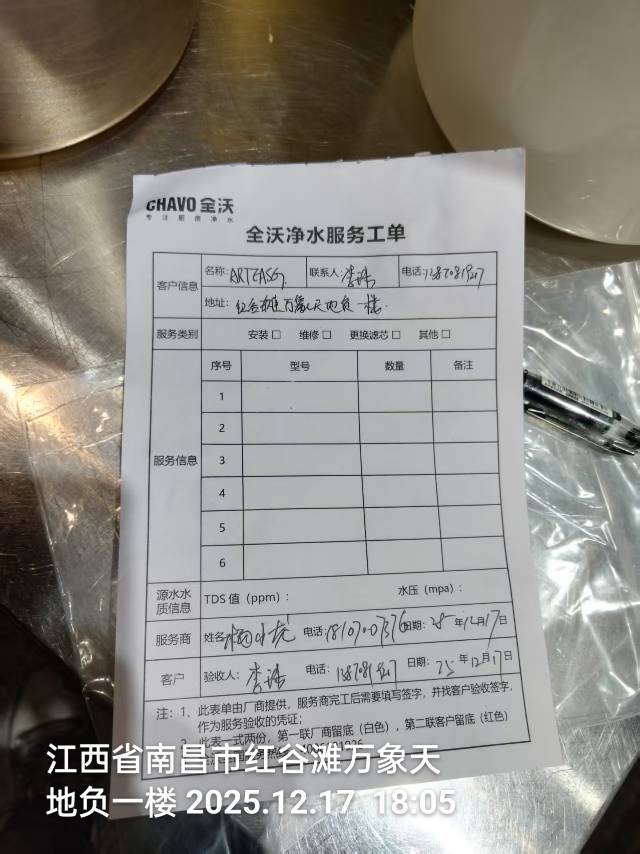 CHAVO 全沃
专注厨房净水
全沃净水服务工单
客户信息 名称: ARTEASG 联系人: 李 电话:
地址: 红谷滩万象天地负一楼
服务类别 安装□ 维修□ 更换滤芯□ 其他□
服务信息 序号 型号 数量 备注
1
2
3
4
5
6
源水水质信息 TDS 值（ppm）: 水压（mpa）:
服务商 姓名 电话: 日期: 25 年 12 月 17 日
客户 验收人: 李 电话: 日期: 25 年 12 月 17 日
注: 1、此表单由厂商提供，服务商完工后需要填写签字，并找客户验收签字，
作为服务验收的凭证；
此表一式两份，第一联厂商留底（白色），第二联客户留底（红色）
江西省南昌市红谷滩万象天
地负一楼 2025.12.17 18:05